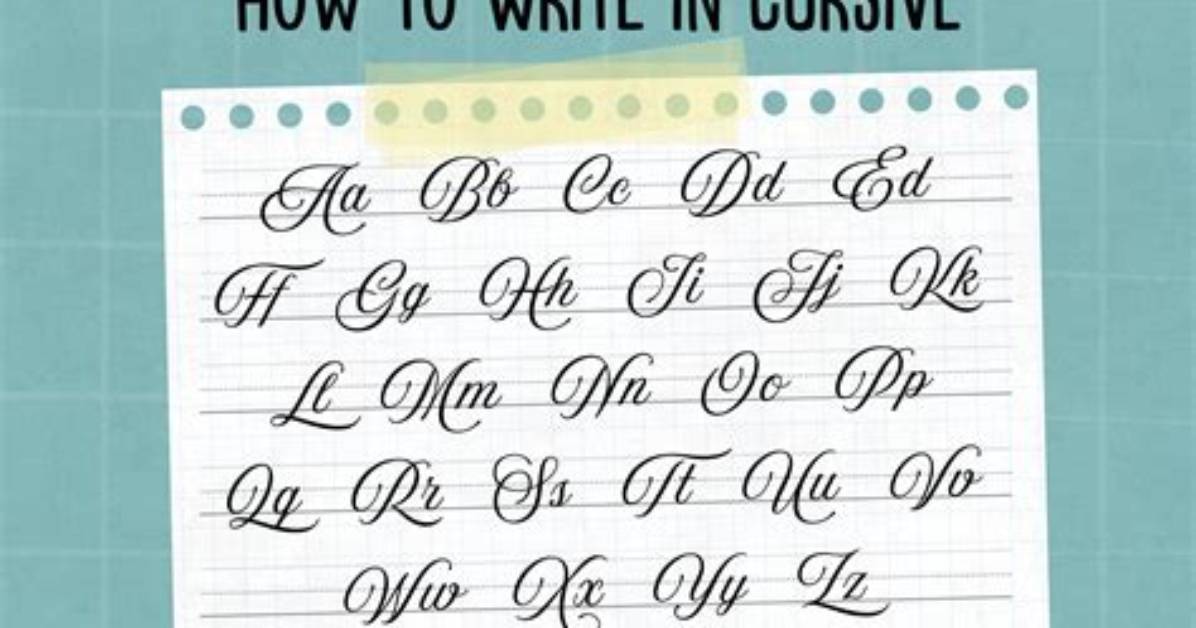 HOW TO WRITE IN CURSIVE
Aa Bb Cc Dd Ed
Ff Gg Hh Ii Jj Kk
Ll Mm Nn Oo Pp
Qq Rr Ss Tt Uu Vv
Ww Xx Yy Zz